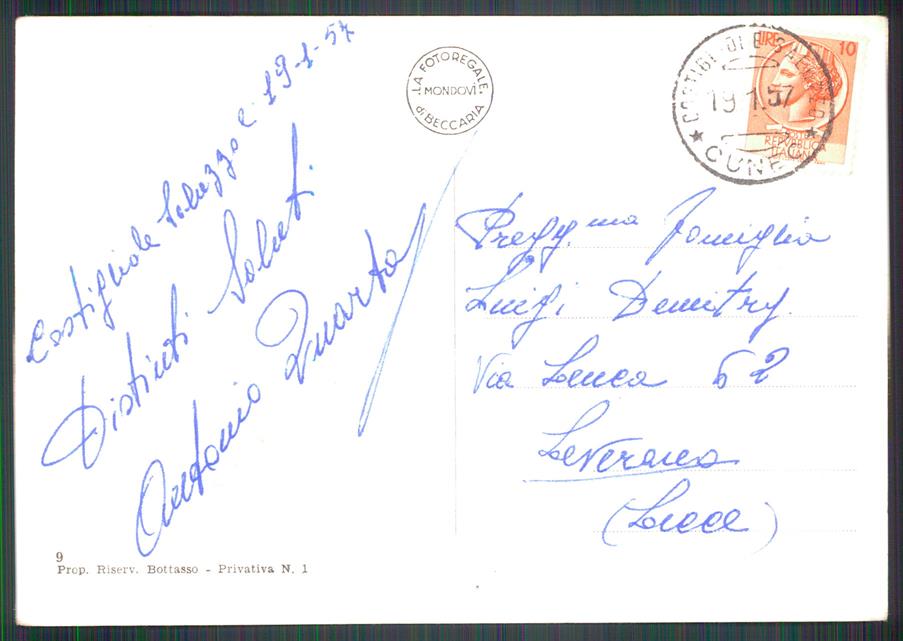 Costigliole Saluzzo li 19-1-57
Distinti Saluti
Antonio Quarta
LA FOTOREGALE
MONDOVÌ
di BECCARIA
19.1.57
CUNEO
LIRE 10
POSTE
REPVBBLICA
ITALIANA
Pregg.ma Famiglia
Luigi Demitry.
Via Leuca 52
Leverano
(Lecce)
9
Prop. Riserv. Bottasso - Privativa N. 1